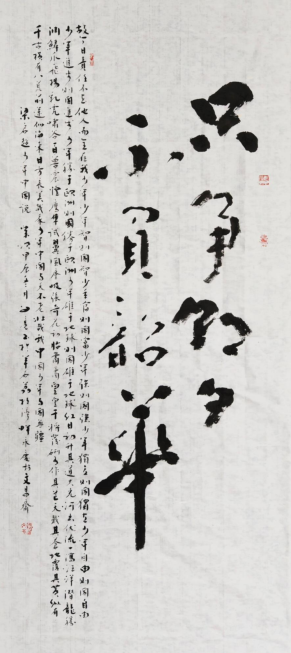 只争朝夕
不負韶華
故今日之責任不在他人而全在我少年少年智則国智少年富則国富少年强則国强少年獨立則国獨立少年自由則国自由
少年進步則国進步少年勝于歐洲則国勝于歐洲少年雄于地球則国雄于地球红日初升其道大光河出伏流一瀉汪洋潜龍騰
渊鱗爪飛揚乳虎嘯谷百獸震惶鷹隼試翼風塵吸張奇花初胎矞矞皇皇干將發硎有作其芒天戴其苍地履其黄纵有
千古横有八荒前途似海来日方長美哉我少年中国与天不老壮哉我中国少年与国無疆
梁启超少年中国說